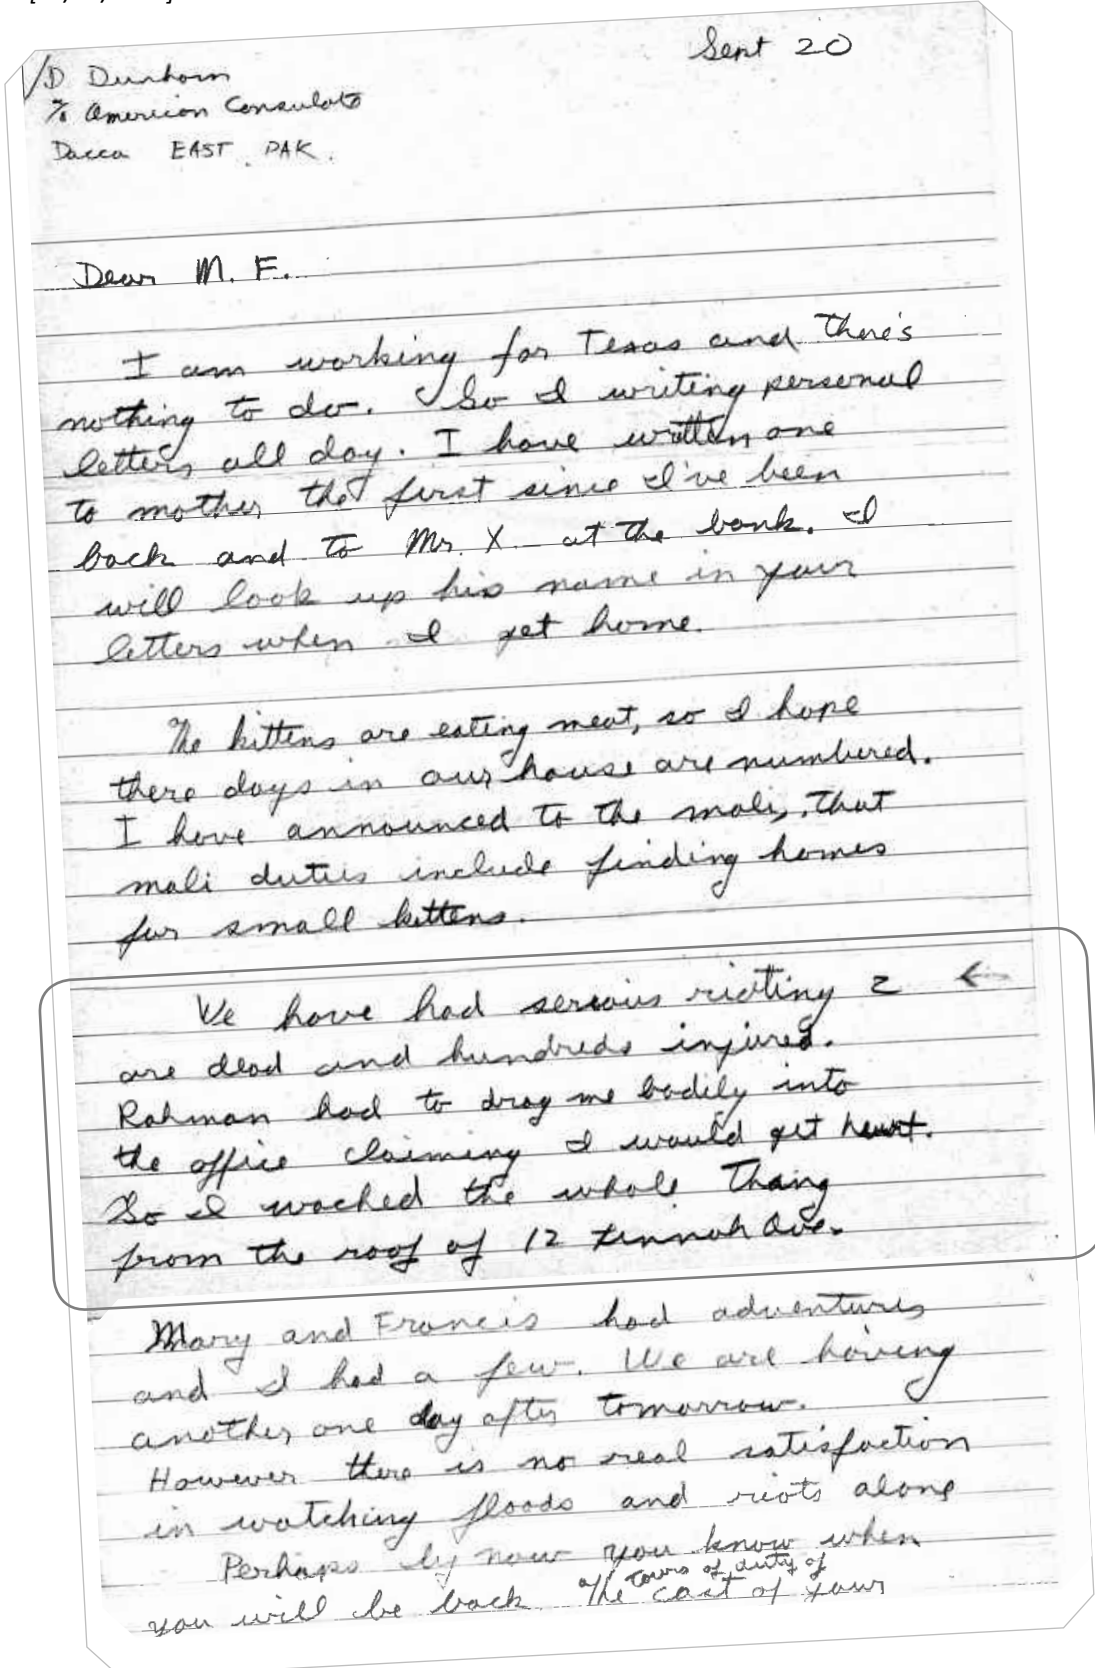 Sept 20
D Dunham
c/o American Consulate
Dacca EAST PAK.
Dear M. F.
I am working for Texas and there's
nothing to do. So I writing personal
letters all day. I have written one
to mother the first since I've been
back and to Mr. X at the bank. I
will look up his name in your
letters when I get home.
The kittens are eating meat, so I hope
there days in our house are numbered.
I have announced to the mali, that
mali duties include finding homes
for small kittens.
We have had serious rioting 2 ←
are dead and hundreds injured.
Rahman had to drag me bodily into
the office claiming I would get hurt.
So I wached the whole thang
from the roof of 12 Jinnah Ave.
Mary and Francis had adventures
and I had a few. We are having
another one day after tomorrow.
However there is no real satisfaction
in watching floods and riots alone
Perhaps by now you know when
tours of duty of
you will be back. The cast of your